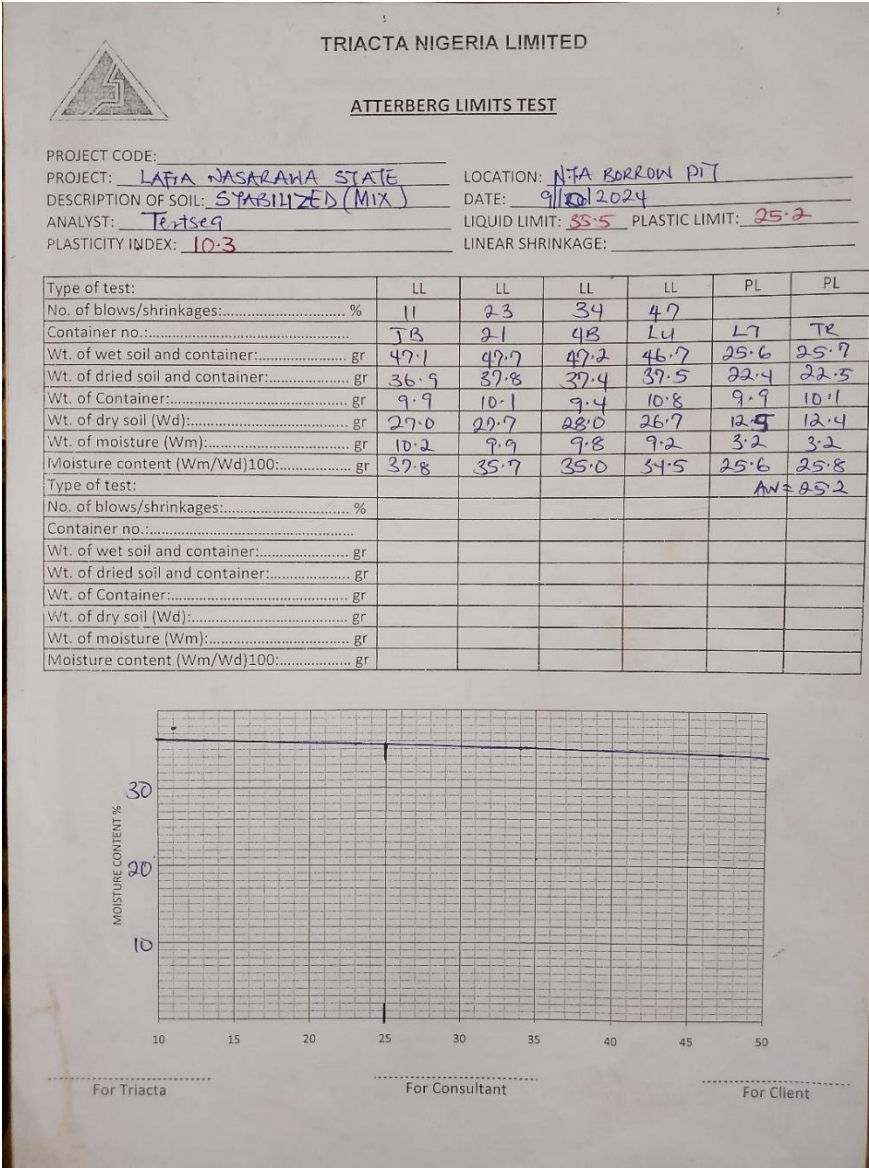 TRIACTA NIGERIA LIMITED
ATTERBERG LIMITS TEST
PROJECT CODE:
PROJECT: LAFIA NASARAWA STATE LOCATION: NTA BORROW PIT
DESCRIPTION OF SOIL: STABILIZED (MIX) DATE: 9/10/2024
ANALYST: LIQUID LIMIT: 35.5 PLASTIC LIMIT: 25.2
PLASTICITY INDEX: 10.3 LINEAR SHRINKAGE:
Type of test: LL LL LL LL PL PL
No. of blows/shrinkages:............................ % 11 23 34 47
Container no.:.................................................. JB 21 4B L4 L7 TR
Wt. of wet soil and container:.................... gr 47.1 47.7 47.2 46.7 25.6 25.7
Wt. of dried soil and container:.................. gr 36.9 37.8 37.4 37.5 22.4 22.5
Wt. of Container:....................................... gr 9.9 10.1 9.4 10.8 9.9 10.1
Wt. of dry soil (Wd):.................................. gr 27.0 27.7 28.0 26.7 12.5 12.4
Wt. of moisture (Wm):............................... gr 10.2 9.9 9.8 9.2 3.2 3.2
Moisture content (Wm/Wd)100:.................. gr 37.8 35.7 35.0 34.5 25.6 25.8
Type of test: AV = 25.2
No. of blows/shrinkages:............................ %
Container no.:..................................................
Wt. of wet soil and container:.................... gr
Wt. of dried soil and container:.................. gr
Wt. of Container:....................................... gr
Wt. of dry soil (Wd):.................................. gr
Wt. of moisture (Wm):............................... gr
Moisture content (Wm/Wd)100:.................. gr
MOISTURE CONTENT %
30
20
10
10 15 20 25 30 35 40 45 50
For Triacta For Consultant For Client